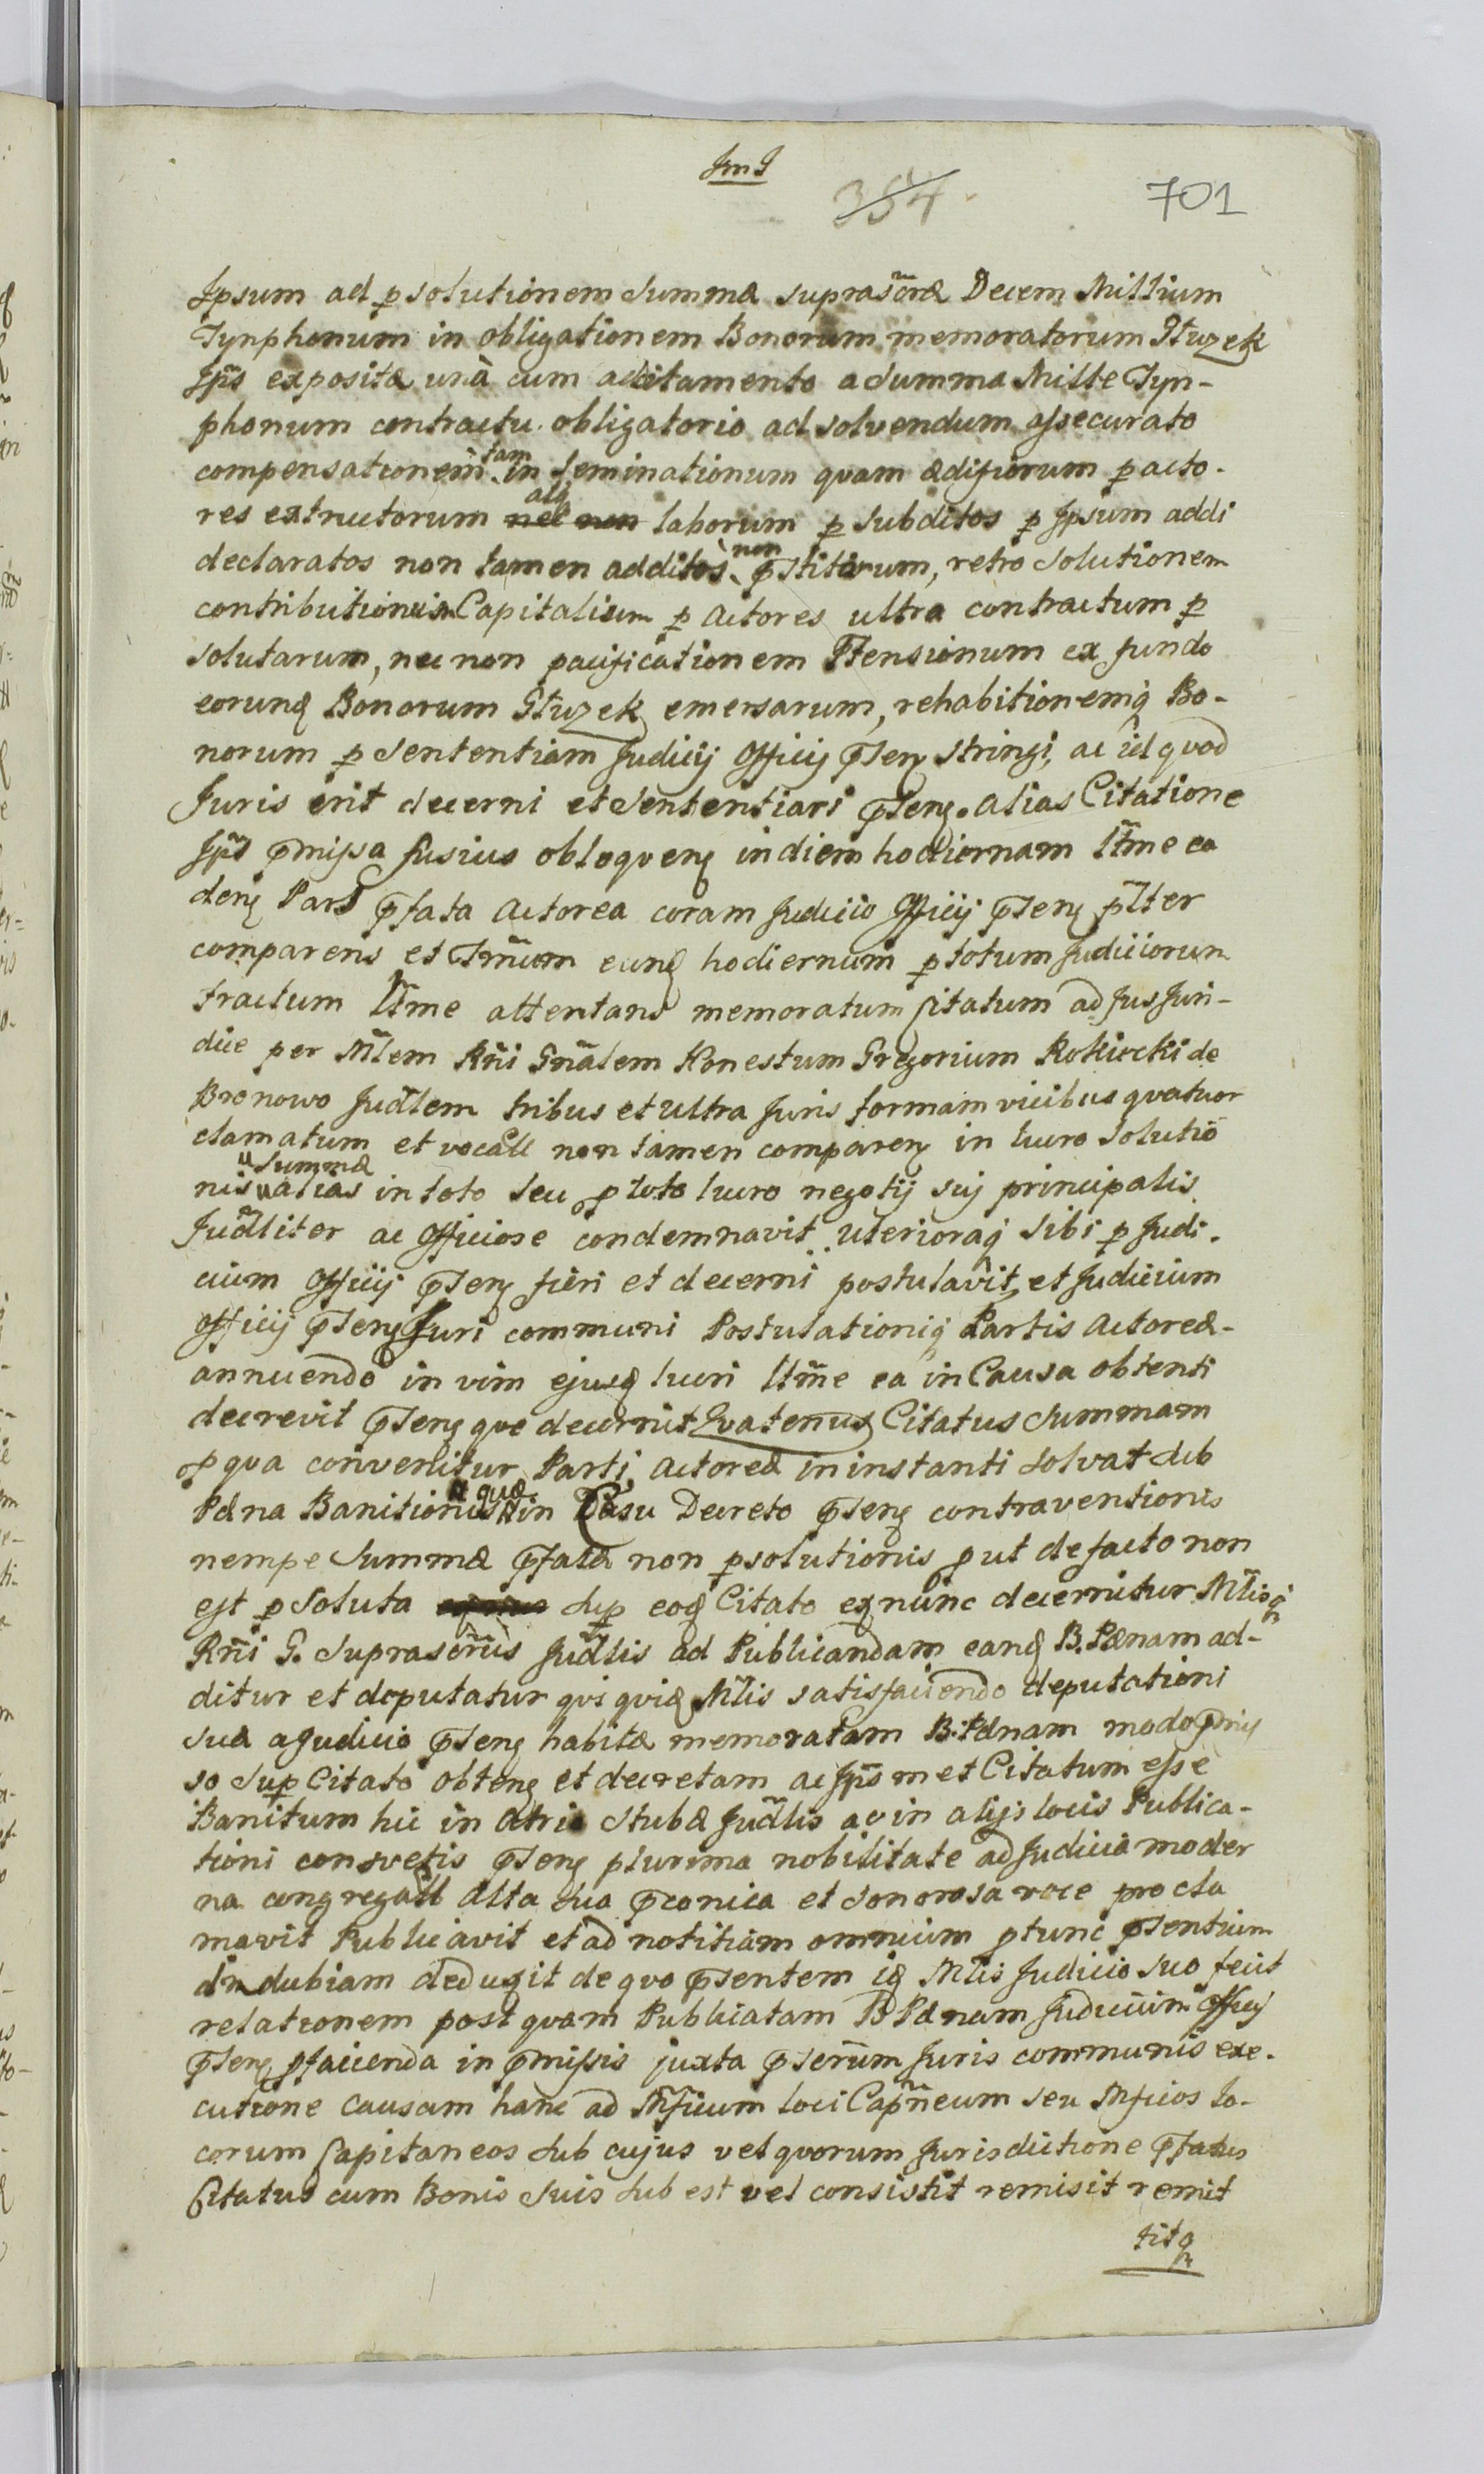 JmJ
354. 701
Ipsum ad p solutionem Summæ suprascr̃æ Decem Millium
Tynphonum in obligationem Bonorum memoratorum Głuzek
Jp̃s expositæ unà cum additamento a Summa Mille Tyn-
phonum contractu obligatorio ad solvendum assecurato
compensationem tam in seminationum quam ædificiorum p acto-
res extructorum nec non alq laborum p subditos p Ipsum addi
declaratos non tamen additos non p̃stitorum, retro solutionem
contributionum Capitalium p actores ultra contractum p
solutarum, nec non pacificationem P̃tensionum ex fundo
eorunq Bonorum Głuzek emersarum, rehabitionemq Bo-
norum p Sententiam Judicij Officij p̃senȝ stringi, ac id quod
Juris erit decerni et Sententiari p̃senȝ. alias Citatione
Jp̃s p̃missa fusius obloquenȝ in diem hodiernam lt̃me ea
denȝ Pars p̃fata Actorea coram Judicio Officij p̃senȝ p̃lter
comparens et Tm̃um eunq hodiernum p totum Judiciorum
tractum lt̃me attentans memoratum Citatum ad Jus Juri-
dice per Mlem Rñi Gñalem Honestum Gregorium Rokicki de
Bronowo Jud̃lem tribus et ultra Juris formam vicibus quatuor
clamatum et vocatt non tamen comparenȝ in lucro Solutio
nis Summæ alias in toto seu p toto lucro negotij sui principalis
Jud̃liter ac Officiose condemnavit ulterioraq sibi p Judi-
cium Officij p̃senȝ fieri et decerni postulavit, et Judicium
Officij p̃senȝ Juri communi Postulationiq Partis Actoreæ-
annuendo in vim ejusq lucri lt̃me ea in Causa obtenti
decrevit p̃senȝ que decernit Quatenus Citatus Summam
p qua convenitur Parti Actoreæ in instanti solvat sub
Pæna Banitionis quæ in Casu Decreto p̃senȝ contraventionis
nempe Summæ p̃fatæ non p solutionis p ut de facto non
est p soluta sup eoq Citato ex nunc decernitur Mlisq
Rñi G. suprascr̃us Jud̃lis ad Publicandam eanq B. Pænam ad-
ditur et deputatur qui quiq Mlis satisfaciendo deputationi
suæ a Judicio p̃senȝ habitæ memoratam B. Pænam modo p̃mis
so sup Citato obtenȝ et decretam ac Jp̃s met Citatum esse
Banitum hic in Atrio Stubæ Jud̃lis ac in alijs locis Publica-
tioni consvetis p̃senȝ plurima nobilitate ad Judicia moder
na congregatt alta sua p̃conica et sonorosa voce procla
mavit Publicavit et ad notitiam omnium p tunc p̃sentium
in dubiam deduxit de quo p̃sentem iq Mlis Judicio suo fecit
relationem post quam Publicatam B Pænam Judicium Officij
p̃senȝ p facienda in p̃missis juxta p̃scr̃um Juris communis exe-
cutione causam hanc ad Mficum loci Cap̃neum seu Mficos lo-
corum Capitaneos sub cujus vel quorum Jurisdictione p̃fatus
Citatus cum Bonis suis sub est vel consistit remisit remit
titq